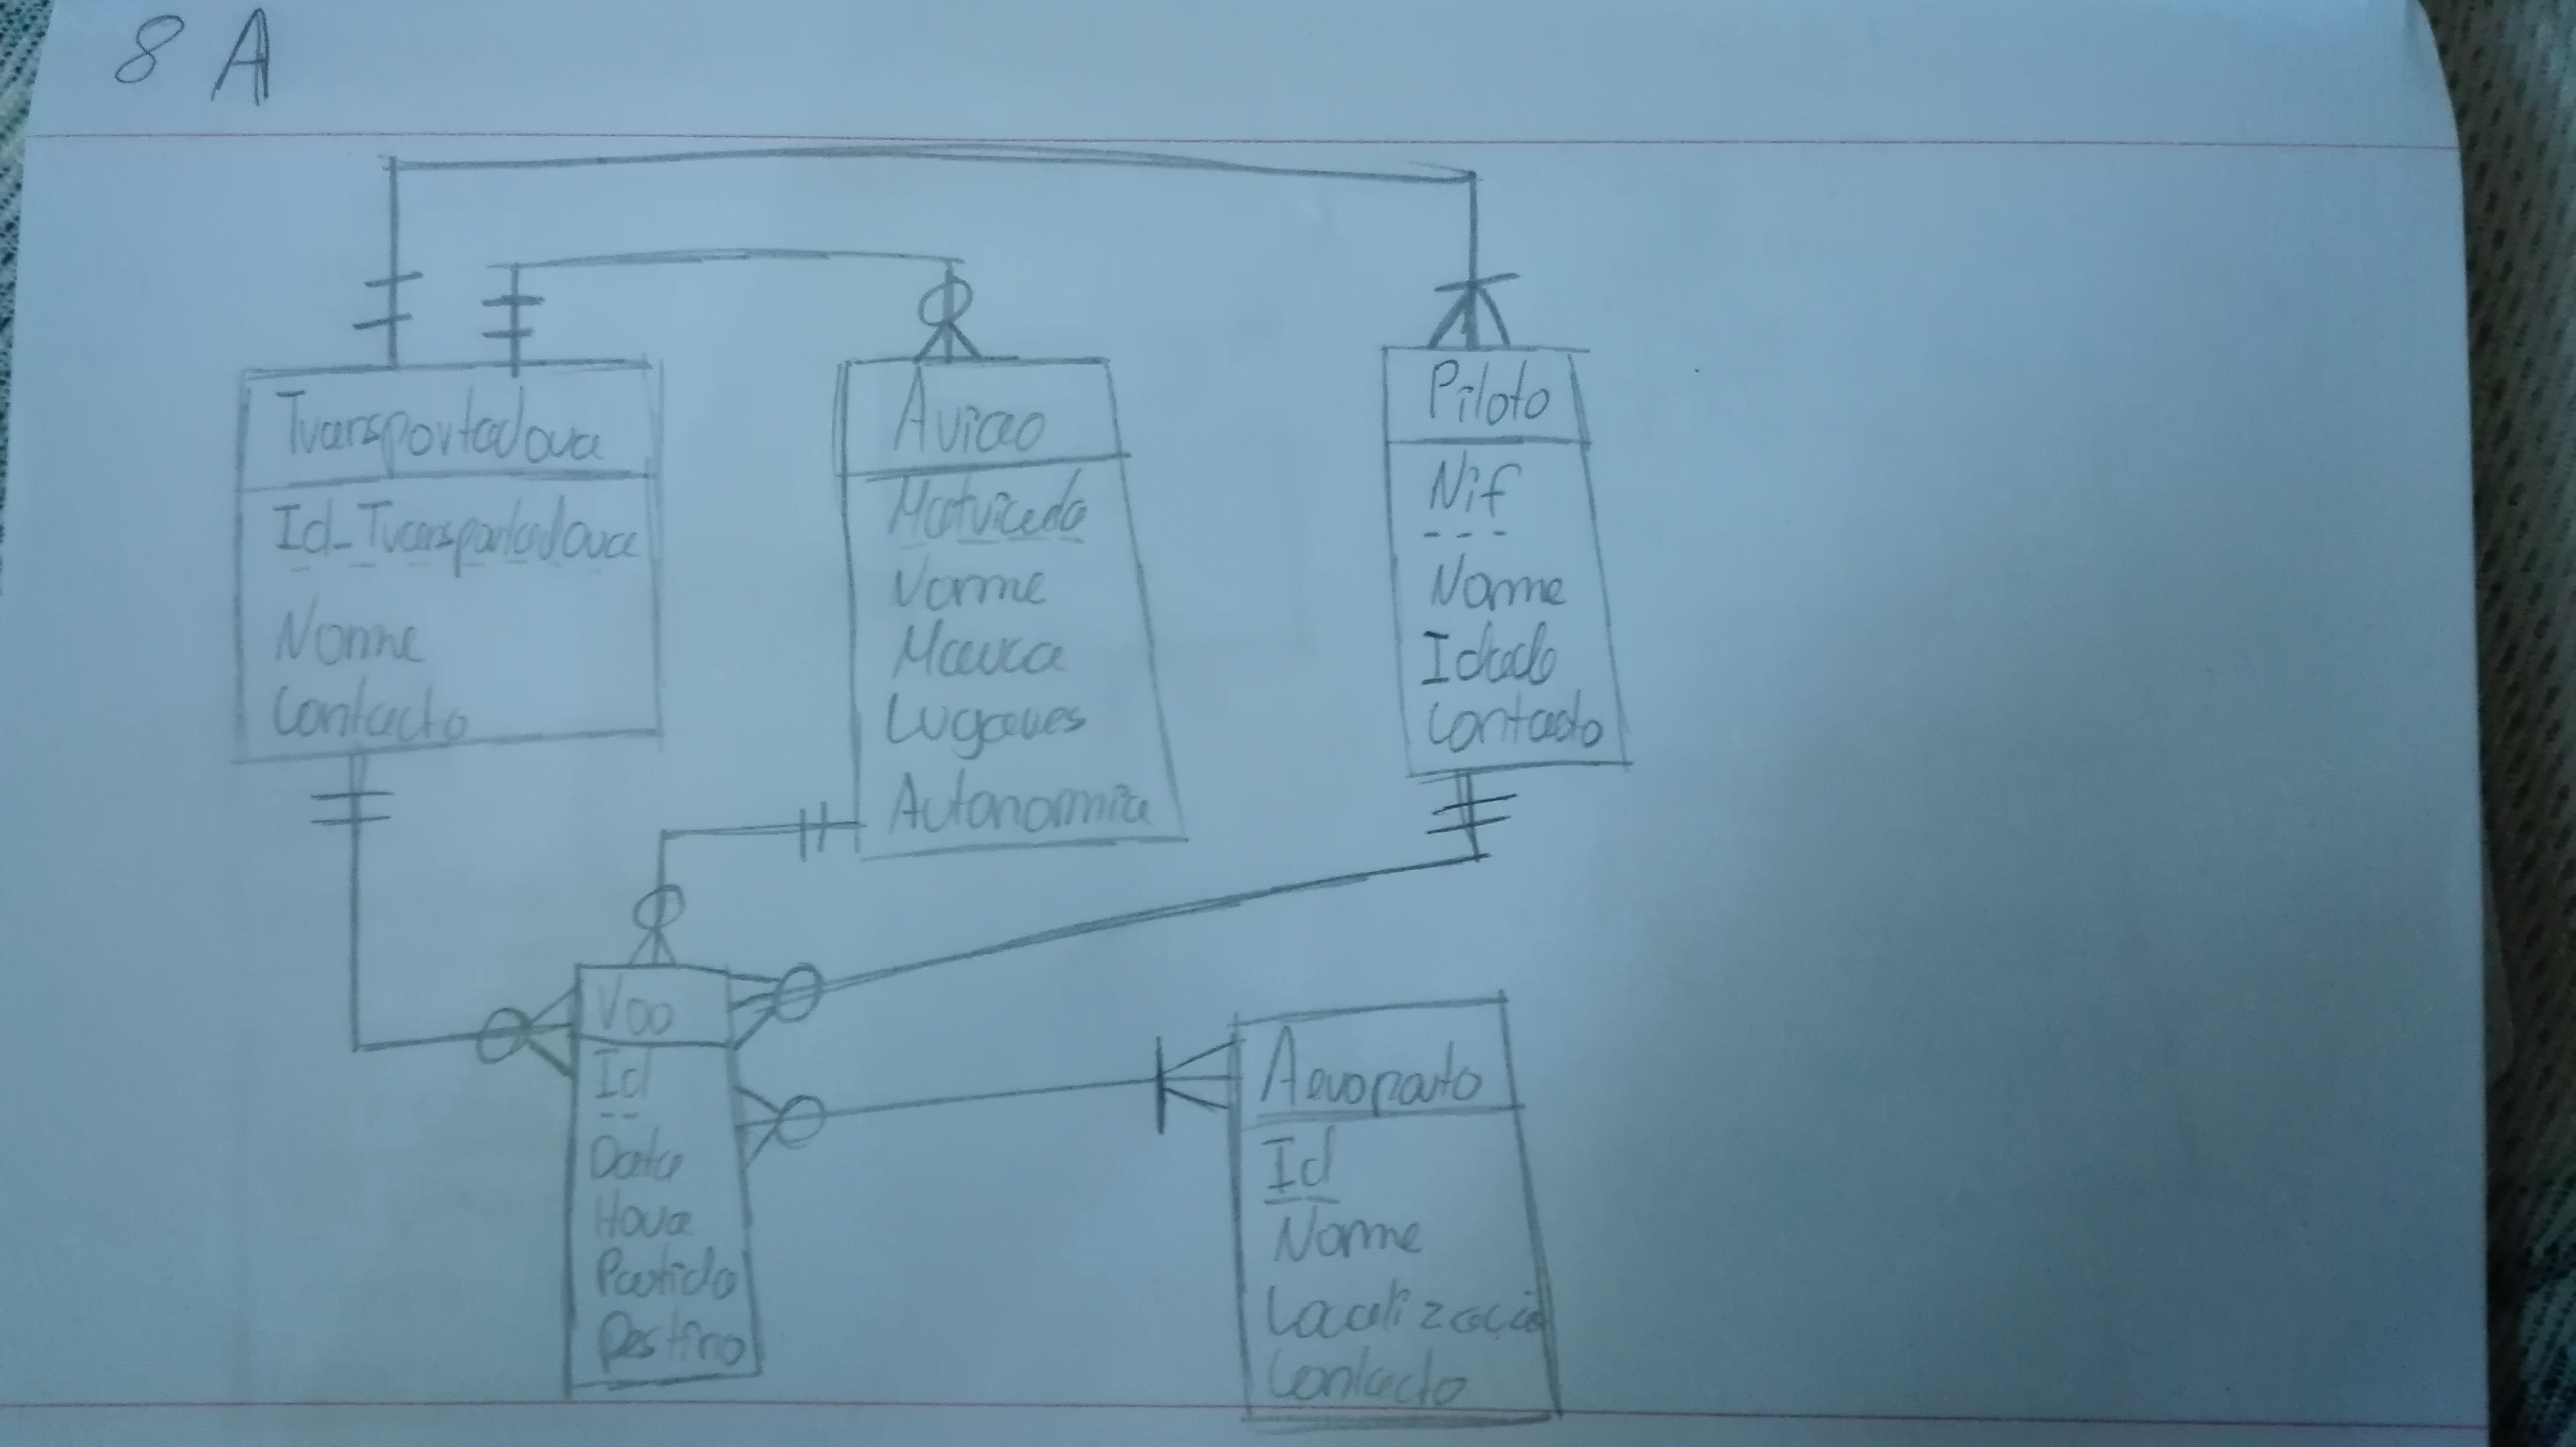 8 A
Transportadora
Id_Transportadora
Nome
Contacto
Aviao
Matricula
Nome
Marca
Lugares
Autonomia
Piloto
Nif
Nome
Idade
Contacto
Voo
Id
Data
Hora
Partida
Destino
Aeroporto
Id
Nome
Localização
Contacto